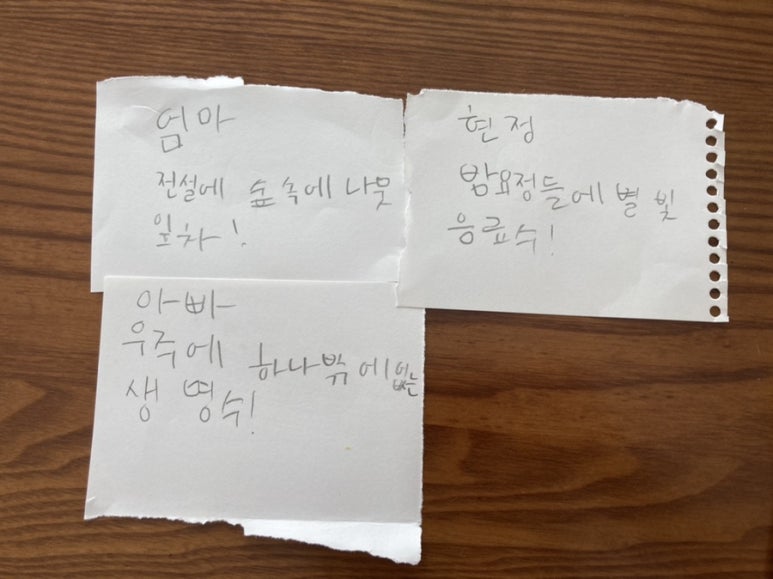 엄마
전설에 숲속에 나뭇
잎차!
현정
밤요정들에 별빛
응료수!
아빠
우주에 하나밖에 없는
생명수!